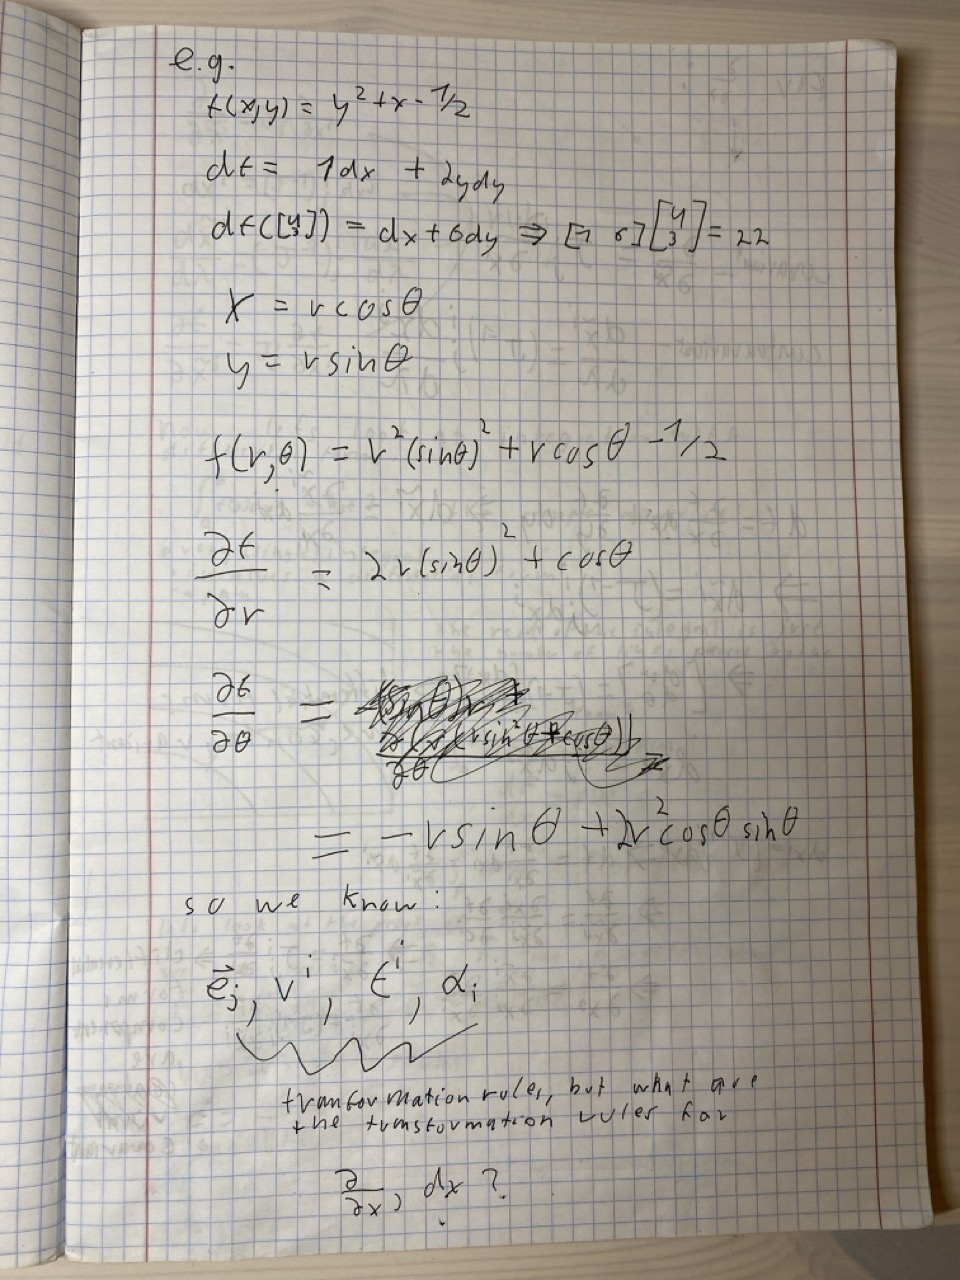 e.g.
f(x,y) = y² + x - 1/2
df = 1dx + 2ydy
df([4 3]) = dx + 6dy ⇒ [1 6][4 3] = 22
x = r cosθ
y = r sinθ
f(r,θ) = r²(sinθ)² + r cosθ - 1/2
∂f/∂r = 2r(sinθ)² + cosθ
∂f/∂θ =
= - r sinθ + 2r² cosθ sinθ
so we know:
e⃗ⱼ, vⁱ, ϵⁱ, αᵢ
transformation rules, but what are
the transformation rules for
∂/∂x, dx ?